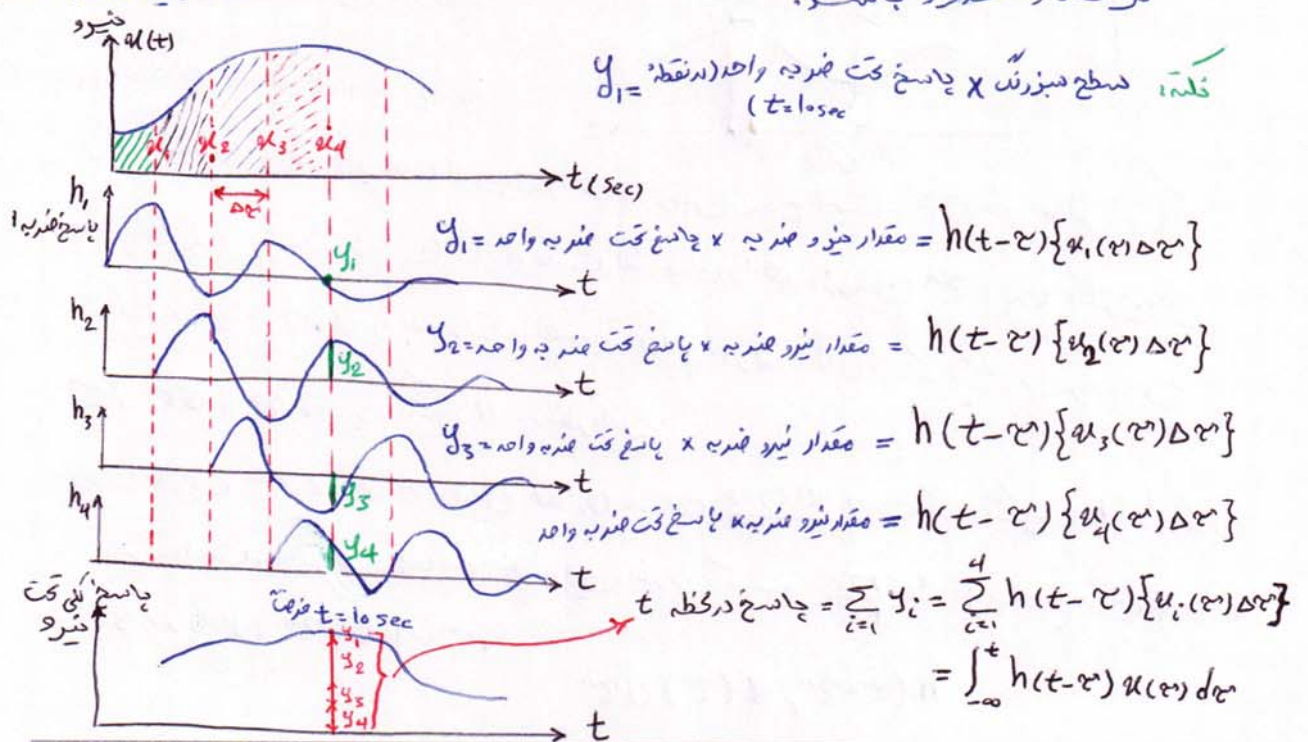 نیرو
u(t)
نکته: سطح سبزرنگ × پاسخ تحت ضربه واحد (در نقطه t=10sec) = y₁
u₁ u₂ u₃ u₄
t(sec)
Δτ
h₁
پاسخ ضربه 1
y₁
t
y₁ = مقدار نیرو ضربه × پاسخ تحت ضربه واحد = h(t-τ){u₁(τ)Δτ}
h₂
y₂
t
y₂ = مقدار نیرو ضربه × پاسخ تحت ضربه واحد = h(t-τ){u₂(τ)Δτ}
h₃
y₃
t
y₃ = مقدار نیرو ضربه × پاسخ تحت ضربه واحد = h(t-τ){u₃(τ)Δτ}
h₄
y₄
t
مقدار نیرو ضربه × پاسخ تحت ضربه واحد = h(t-τ){u₄(τ)Δτ}
پاسخ کلی تحت
نیرو
فرضاً t=10sec
y₁
y₂
y₃
y₄
t
پاسخ در لحظه t = Σ_{i=1} yᵢ = Σ_{i=1}^{4} h(t-τ){uᵢ(τ)Δτ}
= ∫_{-∞}^{t} h(t-τ) u(τ) dτ